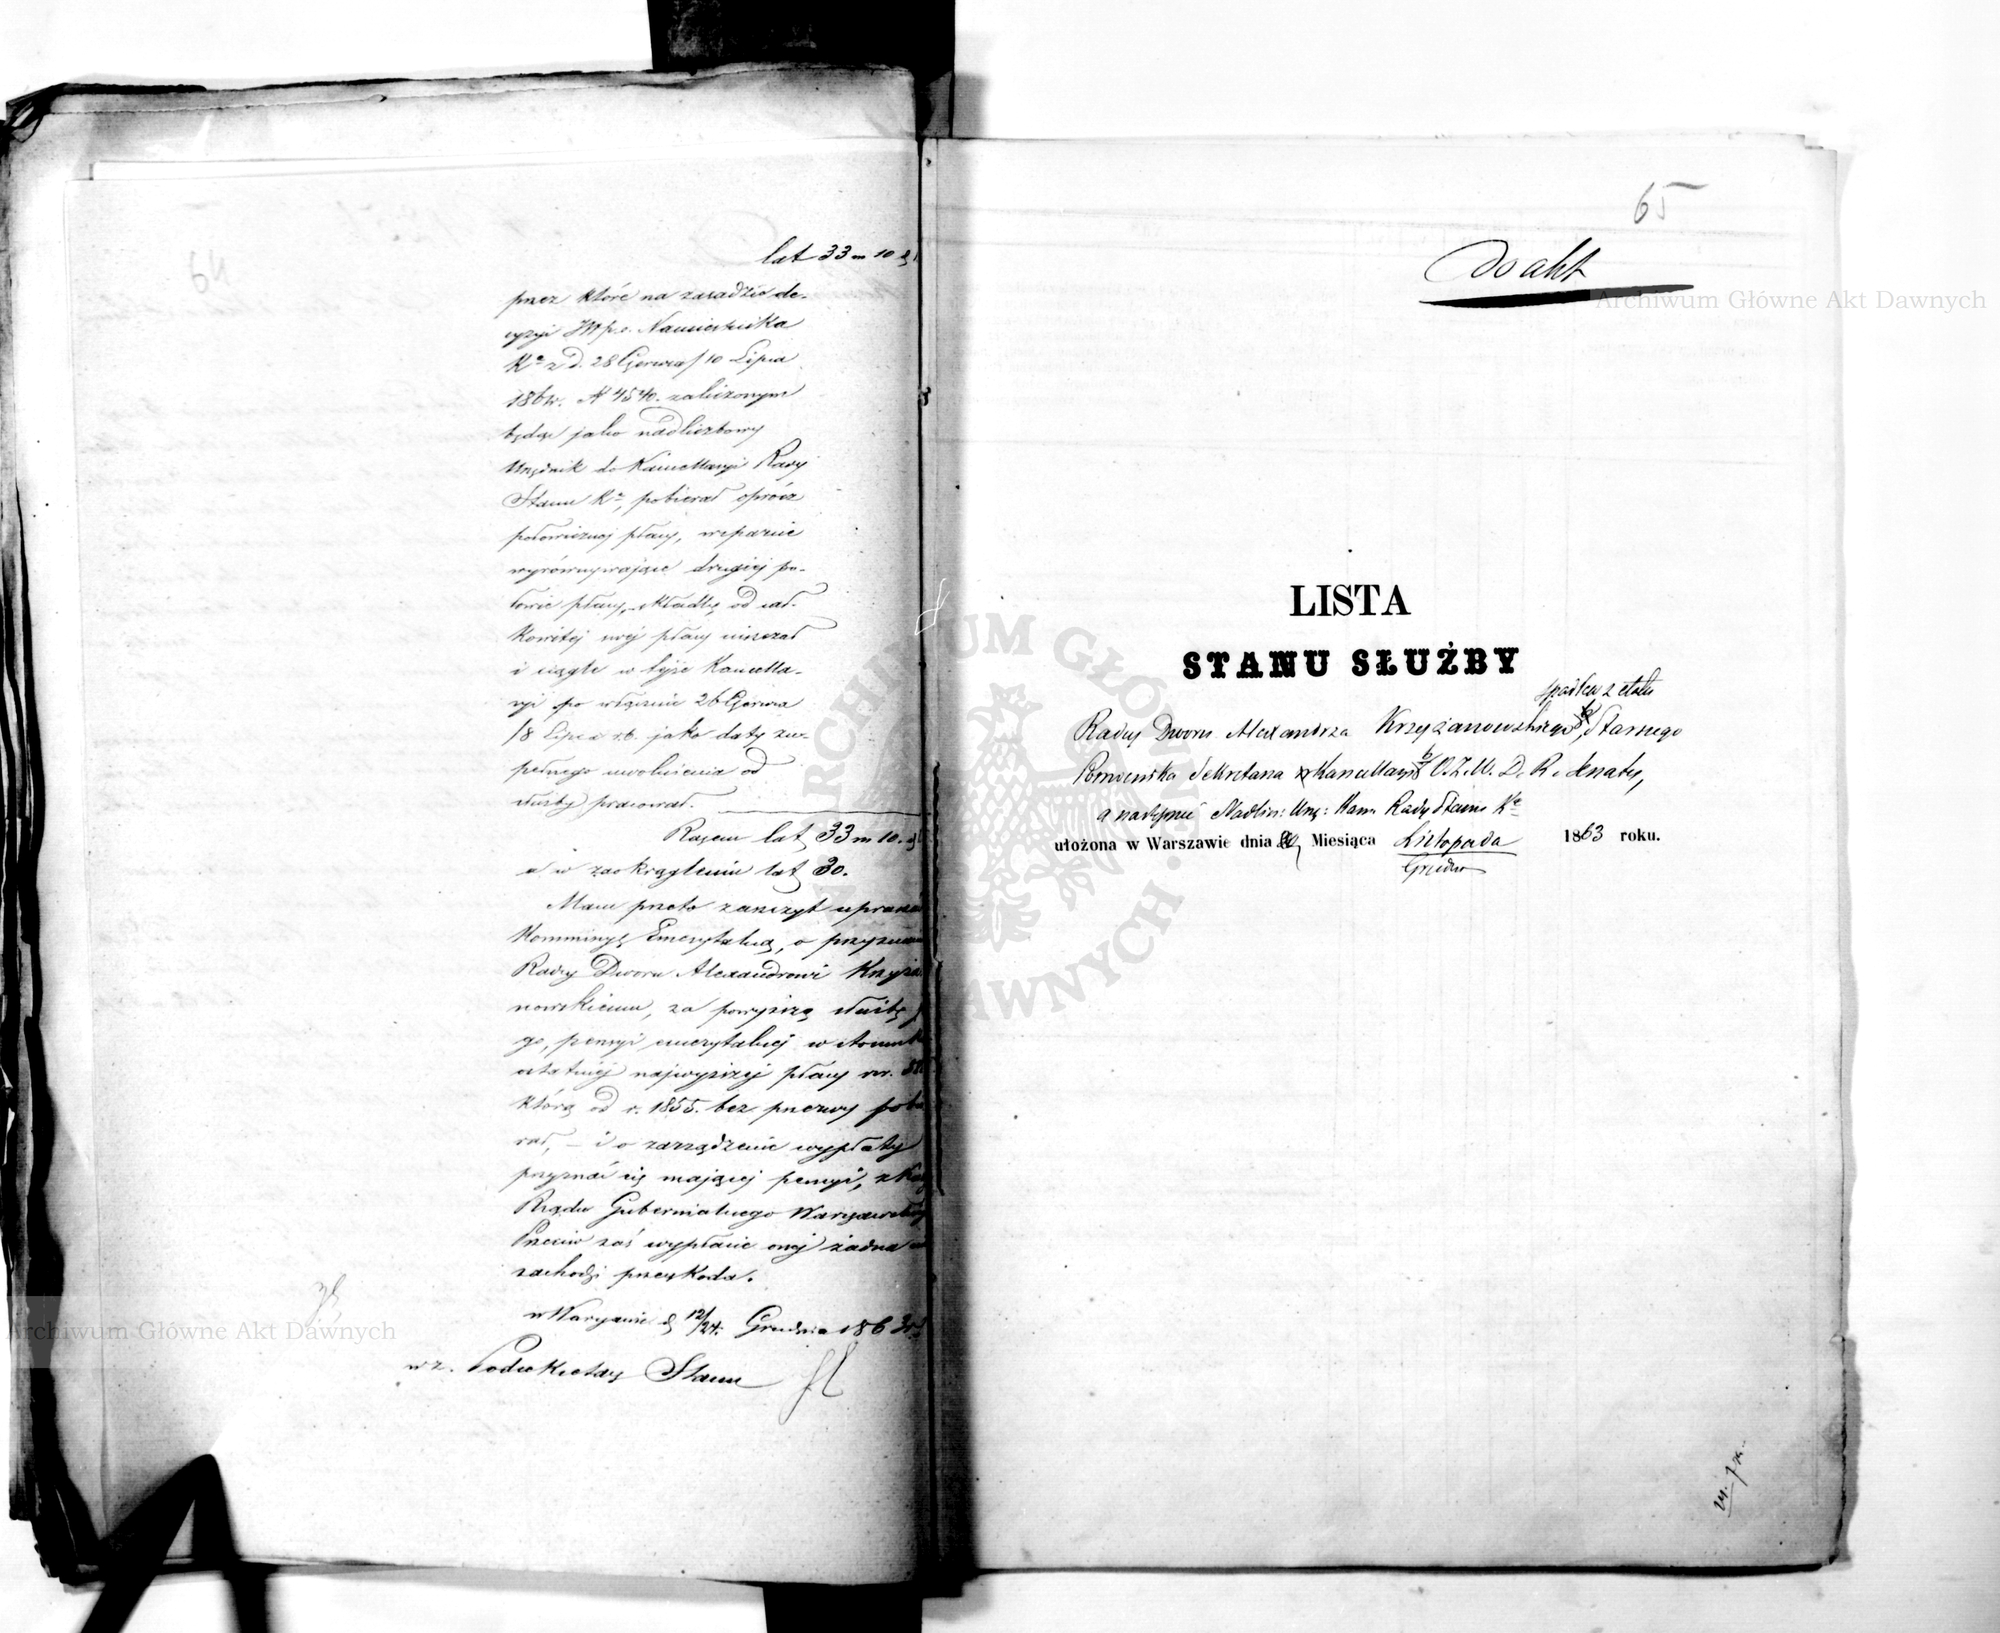 lat 33 m 10
przez które na zasadzie de-
cyzyi JW p.o. Namiestnika
Kº z d. 28 Czerwca/10 Lipca
186 r. N 4540. zaliczonym
będąc jako nadliczbowy
Urzędnik do Kancellaryi Rady
Stanu Kª, pobierał oprócz
połowicznej płacy, wsparcie
wyrównywające drugiej po-
łowie płacy, składkę od cał-
kowitej swéj płacy uiszczał
i ciągle w tejże Kancella-
ryi po włącznie 26 Czerwca
/8 Lipca r.b. jako datę zu-
pełnego uwolnienia od
służby pracował.
Razem lat 33 m 10.
a w zaokrągleniu lat 30.
Mam przeto zaszczyt upraszać
Kommissyę Emerytalną, o przyznanie
Radcy Dworu Alexandrowi Krzyża
nowskiemu, za powyższą służbę
go, pensyi emerytalnej w stosunku
ostatniéj najwyższéj płacy rsr.
którą od r. 1855. bez przerwy pobie
rał, – i o zarządzenie wypłaty
przyznać się mającej pensyi, z Kassy
Rządu Gubernialnego Warszawskiego
Przeciw zaś wypłacie onej żadna
zachodzi przeszkoda.
w Warszawie d 12/24. Grudnia 1863 r
wz. Podsekretarz Stanu
64
65
Do akt
LISTA
STANU SŁUŻBY
spadłego z etatu
Radcy Dworu Alexandra Krzyżanowskiego, Starszego
Pomocnika Sekretarza Kancellaryi O.Z.W.D.R. Senatu,
a następnie Nadlicz: Urzę: Kanc Rady Stanu Kª
ułożona w Warszawie dnia Miesiąca Listopada 1863 roku.
Grudnia
Archiwum Główne Akt Dawnych
Archiwum Główne Akt Dawnych
ARCHIWUM GŁÓWNE AKT DAWNYCH